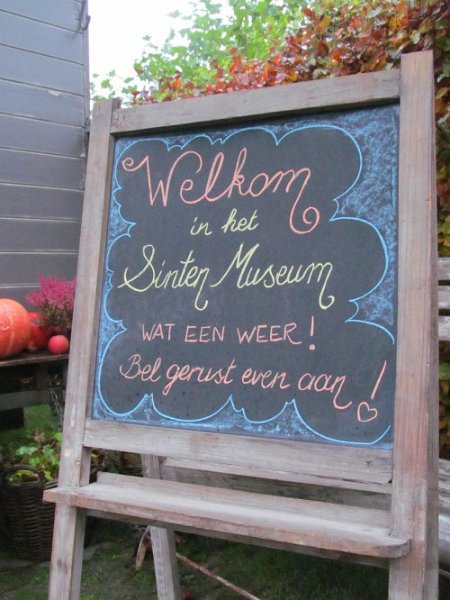 Welkom
in het
Sinten Museum
WAT EEN WEER!
Bel gerust even aan!